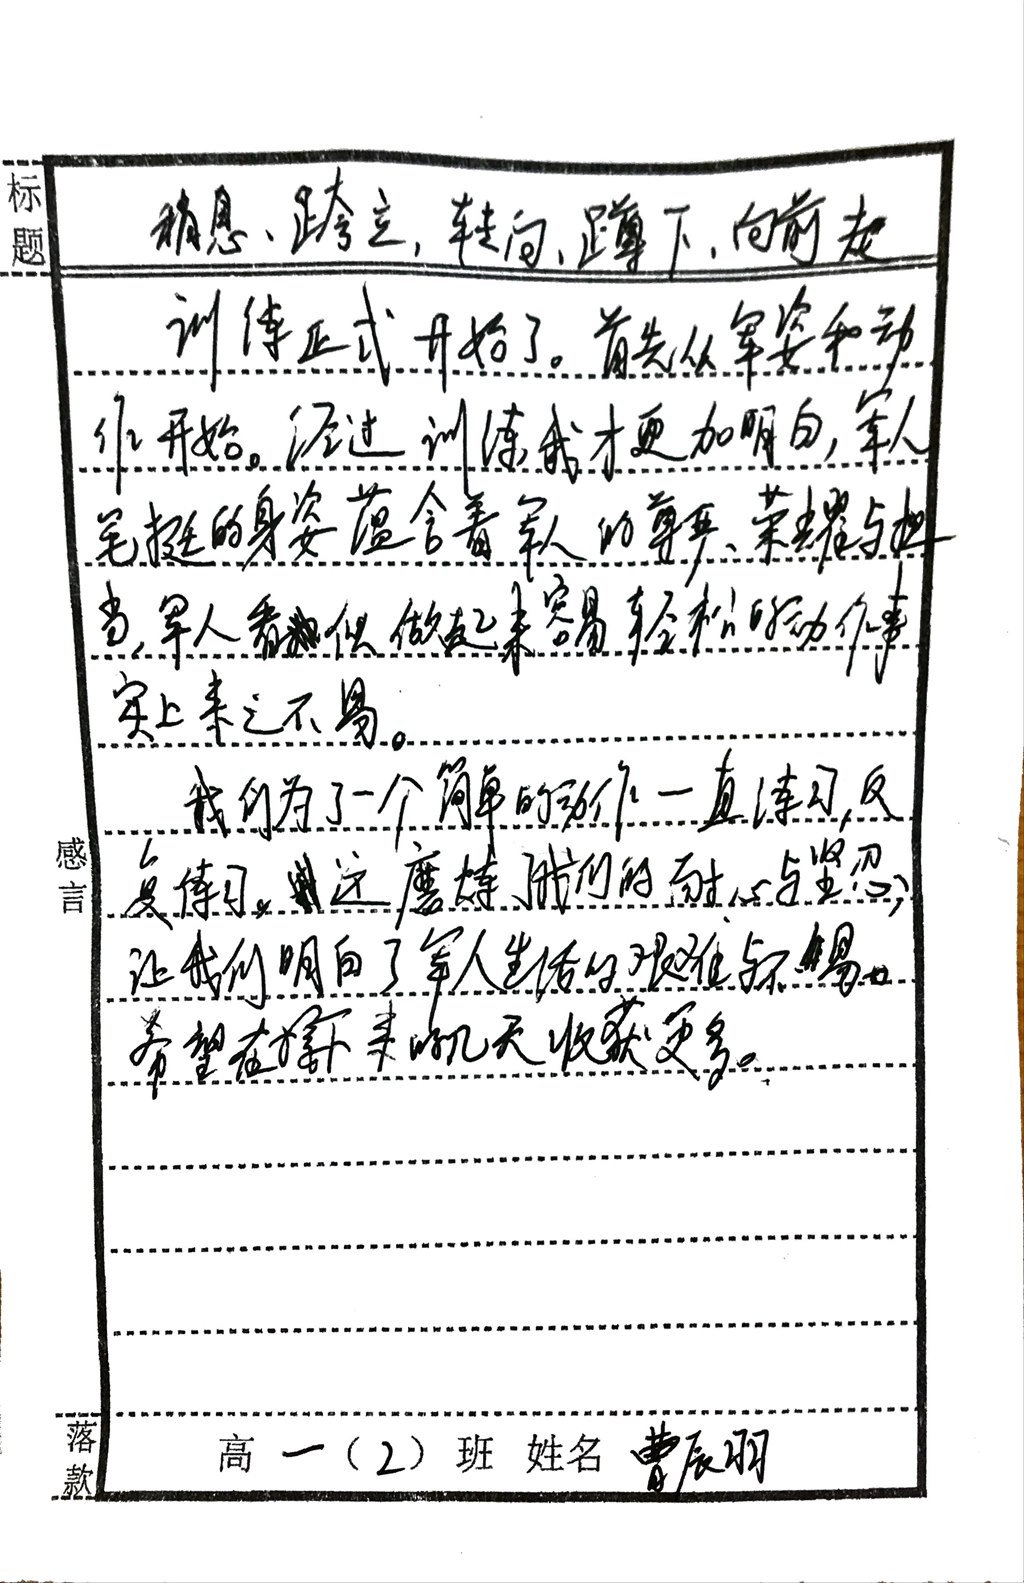 标题
稍息、跨立,转向、蹲下、向前走
训练正式开始了。首先从军姿和动
作开始。经过训练我才更加明白,军人
笔挺的身姿蕴含着军人的尊严、荣耀与担
当,军人看似做起来容易轻松的动作事
实上来之不易。
我们为了一个简单的动作一直练习,反
复练习。这磨炼了我们的耐心与坚忍,
让我们明白了军人生活的艰难与不易。
希望在接下来的几天收获更多。
感言
落款
高一(2)班 姓名 曹辰羽